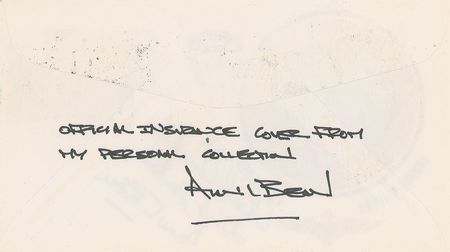 OFFICIAL INSURANCE COVER FROM
MY PERSONAL COLLECTION
Alan L Bean